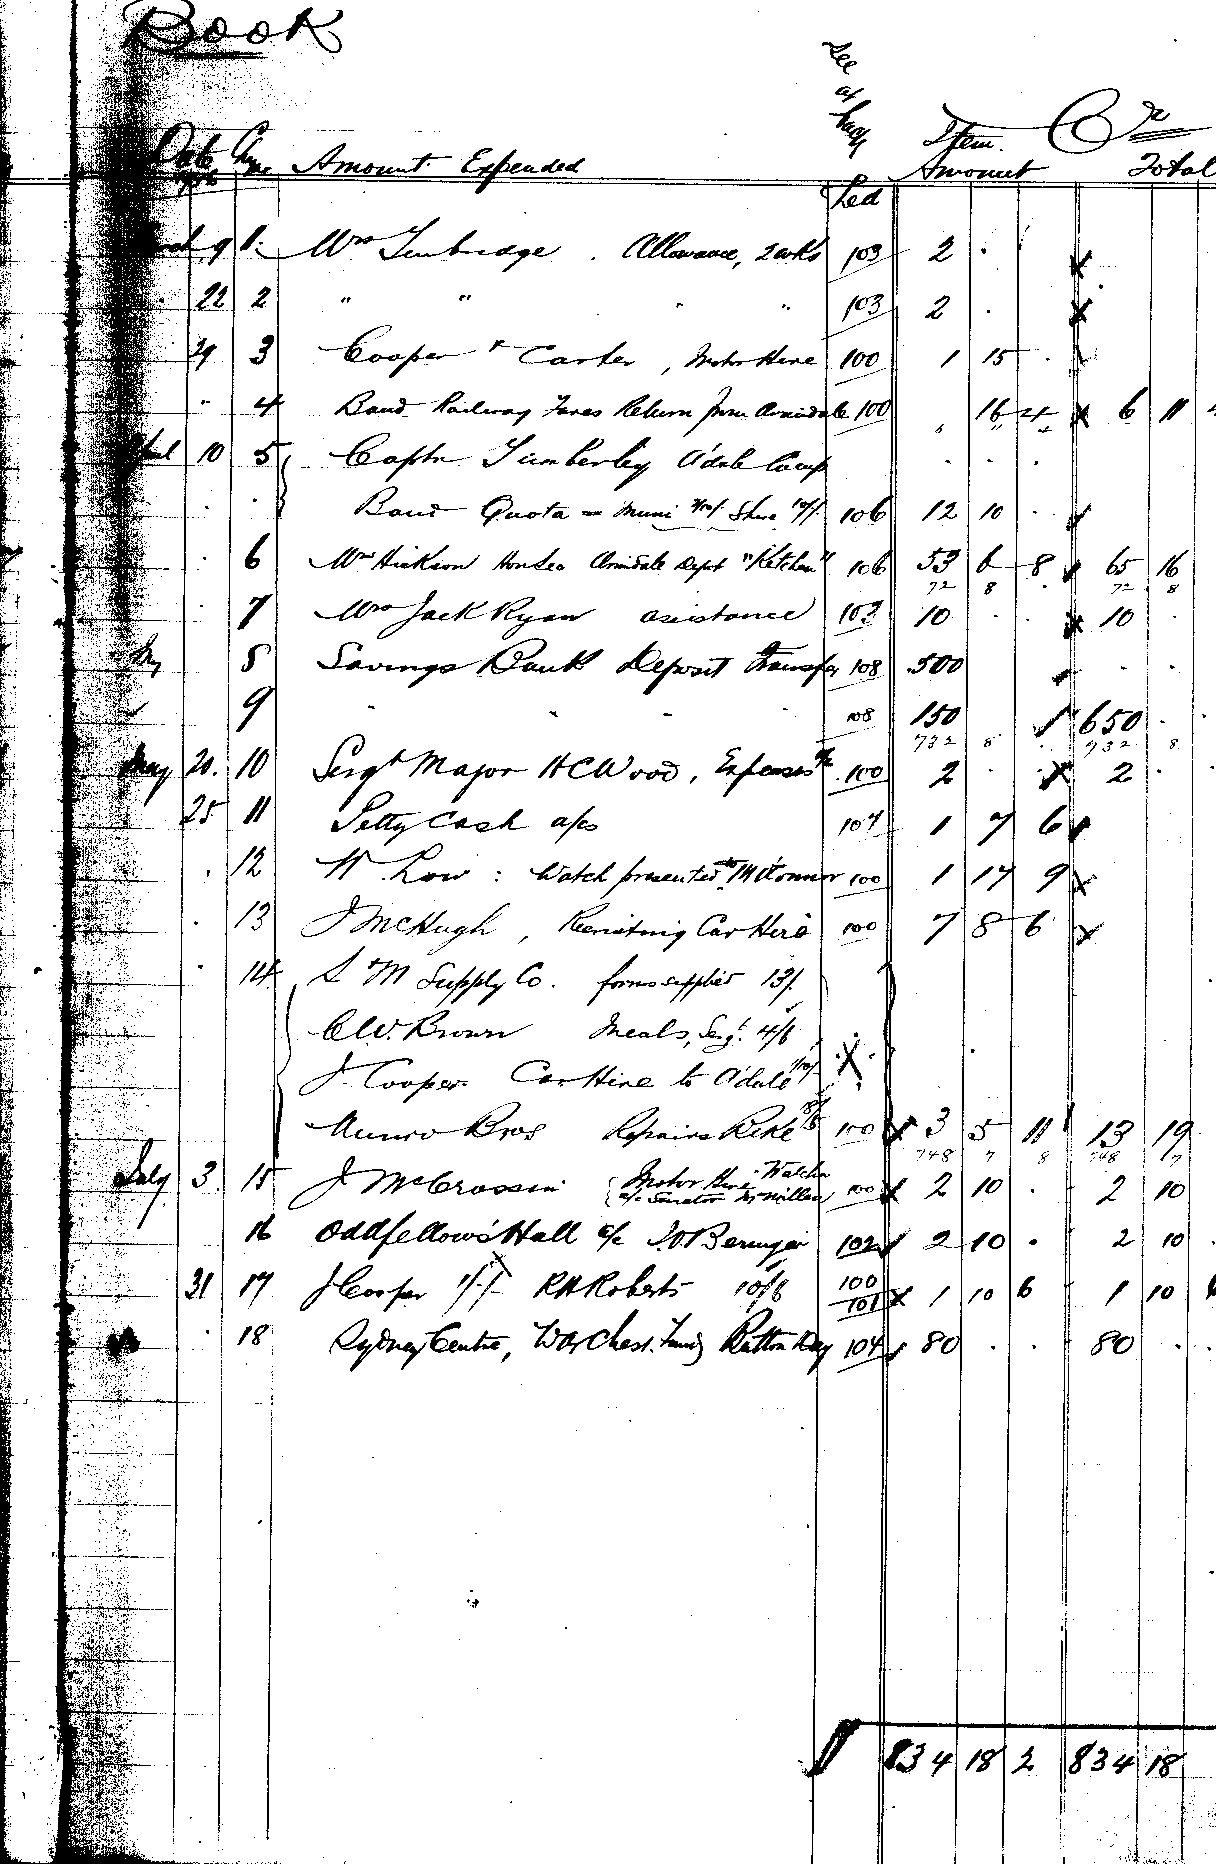 Book
See at back
Date Chq No. Amount Expended Led Item Amount Cr Total
1916
March 9 1. Mrs Timbridge . Allowance, 2 wks 103 2 .
. 22 2 " " " " 103 2 .
29 3 Cooper & Carter, Motor Hire 100 1 15 .
" 4 Band Railway Fares Return from Armidale 100 " 16 4 6 11 4
April 10 5 Captn Timberley A'dale Camp . . .
Band Quota = Muni 2/10/- Shire 10/- 106 12 10 .
. 6 Wm Hickson Hon Sec Armidale Depot "Kitchen" 106 53 6 8 65 16
72 8 . 72 8
. 7 Mrs Jack Ryan assistance 103 10 . . 10 .
8 Savings Bank Deposit transfer 108 500 . .
9 " " " 108 150 650 .
732 8 . 732 8
May 20. 10 Sergt Major H C Wood, Expenses a/c 100 2 . 2 .
25 11 Petty Cash a/cs 107 1 7 6
. 12 W Low : Watch presented to M O'Connor 100 1 17 9
. 13 J McHugh, Recruiting Car Hire 100 7 8 6
. 14 S & M Supply Co. forms supplied 13/-
C.W. Brown Meals, Sergt. 4/6
J. Cooper Car Hire to A'dale
Munro Bros Repairs Bike 100 3 5 11 13 19
748 7 8 748 7
July 3 15 J McCrossin Motor Hire Walcha 100 2 10 . 2 10
a/c Senator McMillan
16 Oddfellows' Hall a/c 102 2 10 . 2 10 .
31 17 J Cooper 1/-/- R H Roberts 10/6 100 1 10 6 1 10 6
101
. 18 Sydney Centre, War Chest Fund Button Day 104 80 . . 80 . .
834 18 2 834 18